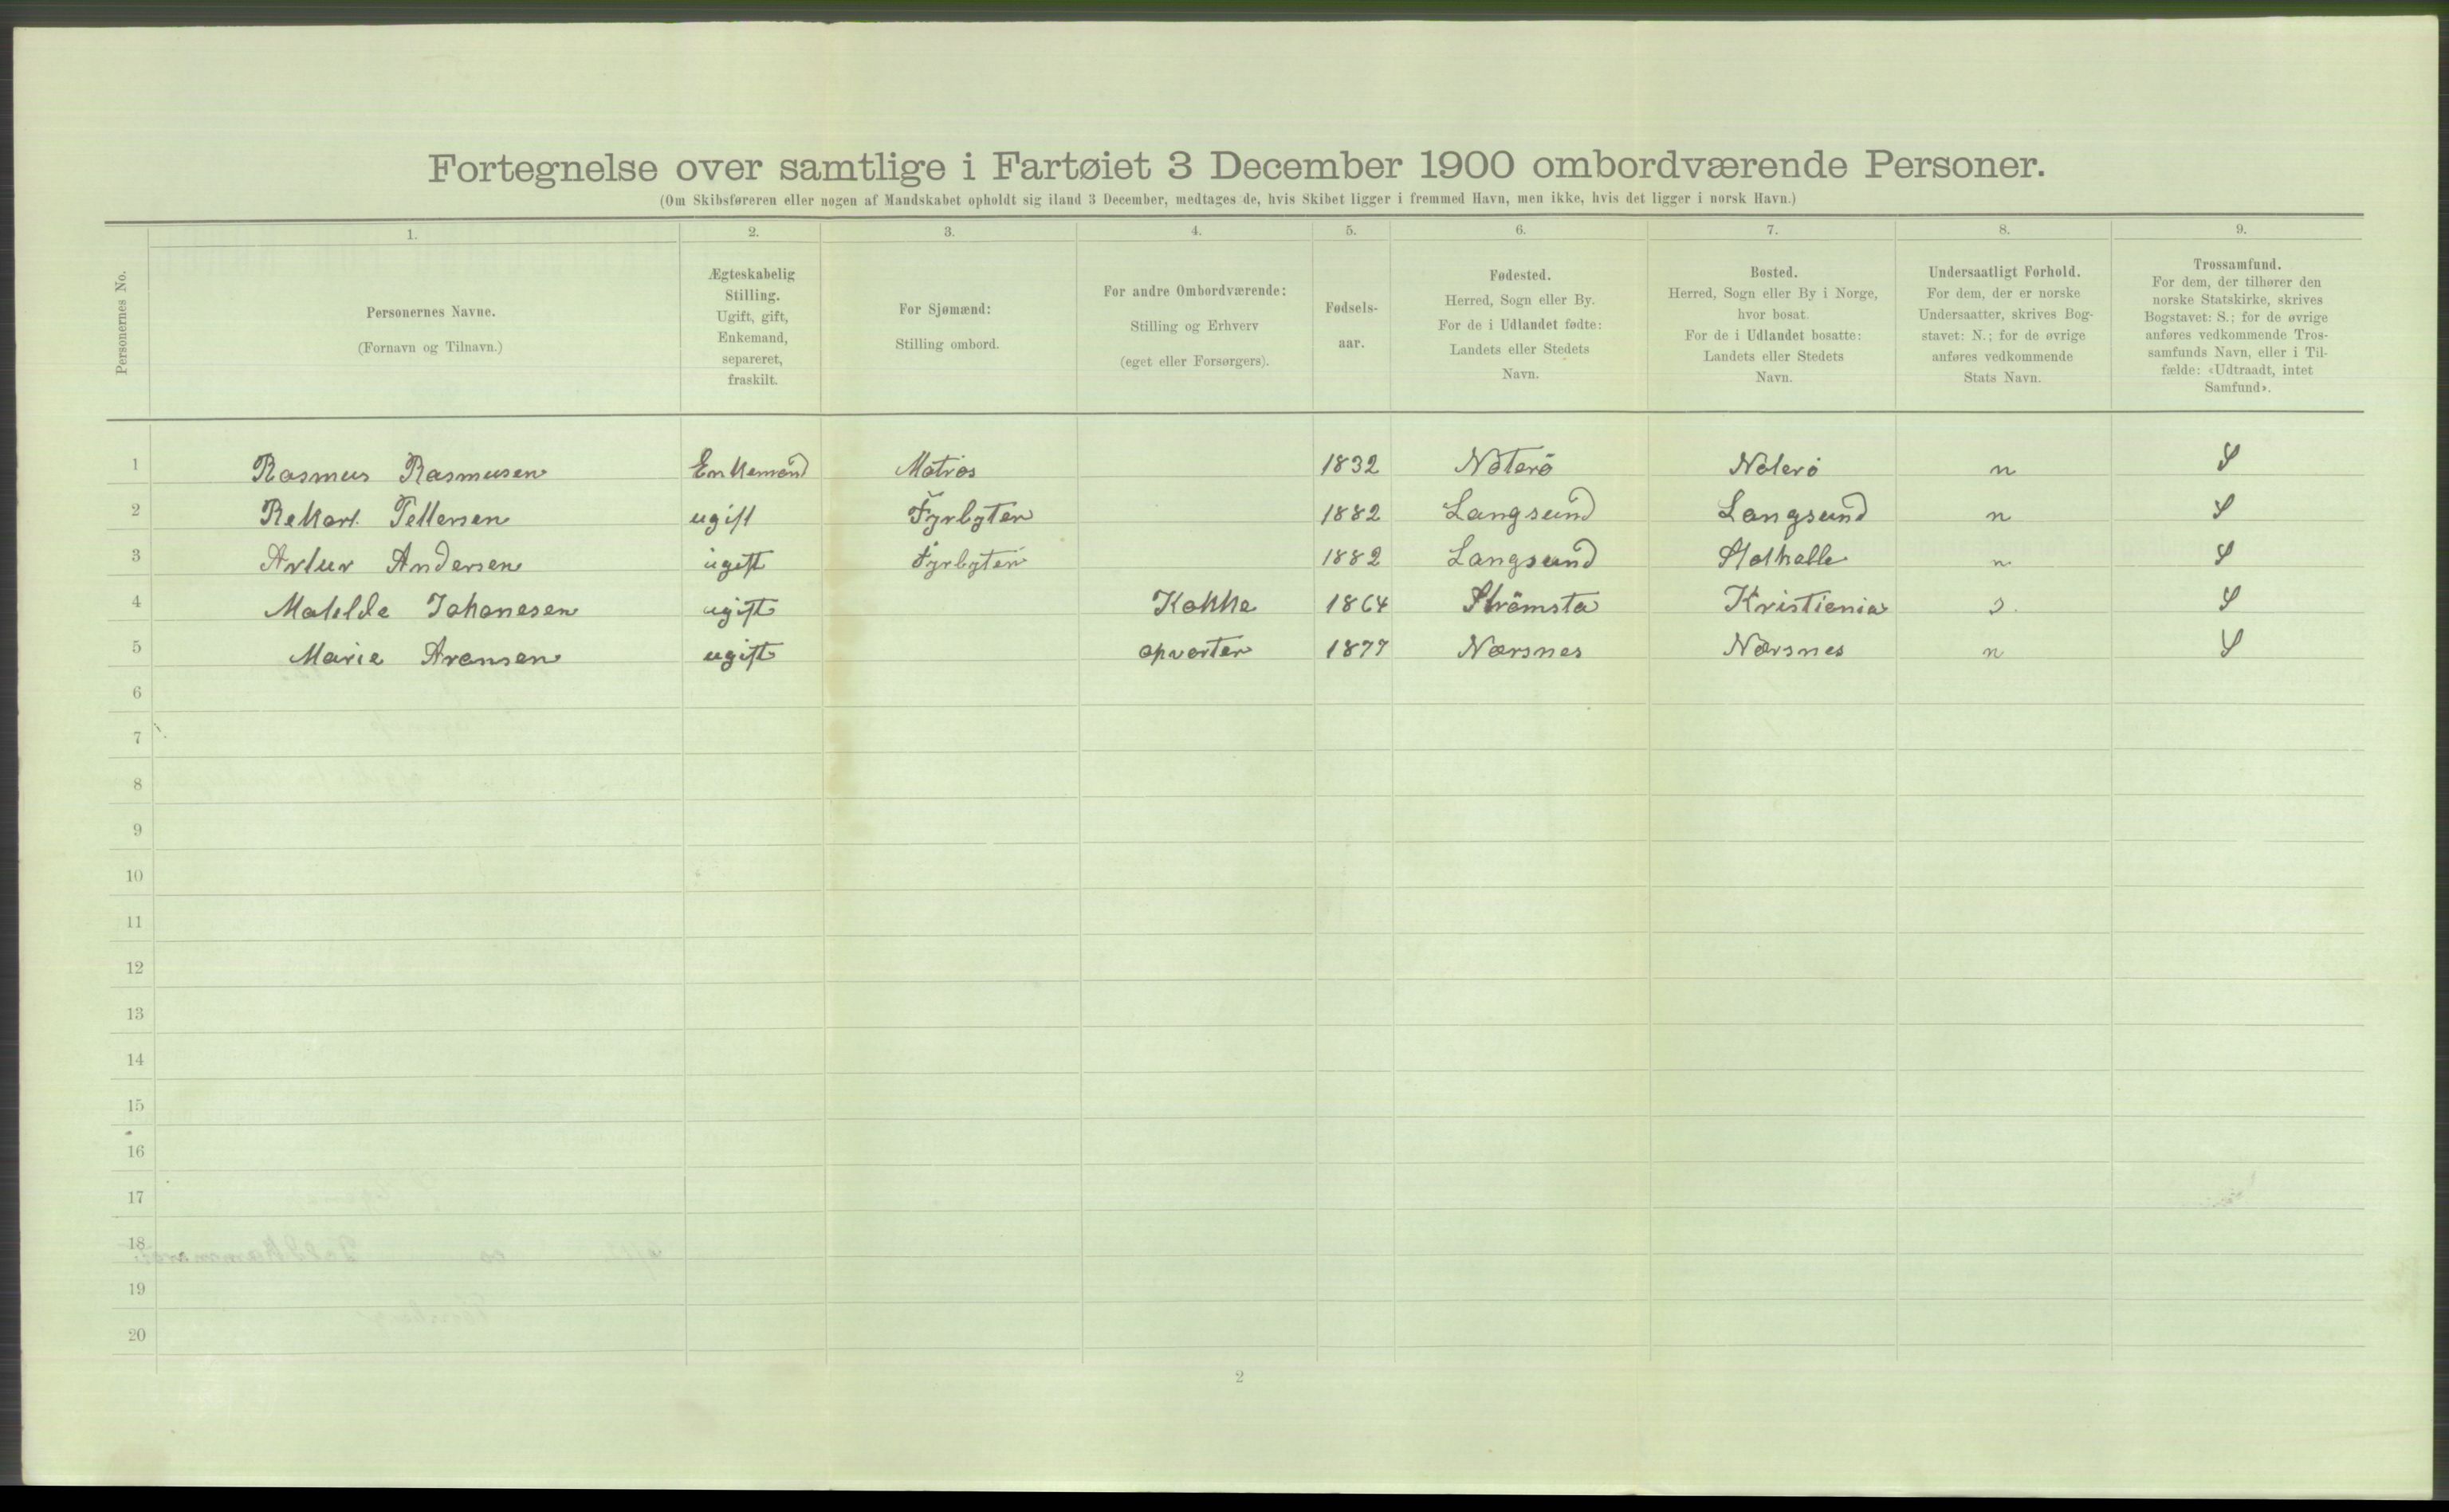 Fortegnelse over samtlige i Fartøiet 3 December 1900 ombordværende Personer.
(Om Skibsføreren eller nogen af Mandskabet opholdt sig iland 3 December, medtages de, hvis Skibet ligger i fremmed Havn, men ikke, hvis det ligger i norsk Havn.)
Personernes No.
1. 2. 3. 4. 5. 6. 7. 8. 9.
Personernes Navne.
(Fornavn og Tilnavn.)
Ægteskabelig
Stilling.
Ugift, gift,
Enkemand,
separeret,
fraskilt.
For Sjømænd:
Stilling ombord.
For andre Ombordværende:
Stilling og Erhverv
(eget eller Forsørgers).
Fødsels-
aar.
Fødested.
Herred, Sogn eller By.
For de i Udlandet fødte:
Landets eller Stedets
Navn.
Bosted.
Herred, Sogn eller By i Norge,
hvor bosat.
For de i Udlandet bosatte:
Landets eller Stedets
Navn.
Undersaatligt Forhold.
For dem, der er norske
Undersaatter, skrives Bog-
stavet: N.; for de øvrige
anføres vedkommende
Stats Navn.
Trossamfund.
For dem, der tilhører den
norske Statskirke, skrives
Bogstavet: S.; for de øvrige
anføres vedkommende Tros-
samfunds Navn, eller i Til-
fælde: «Udtraadt, intet
Samfund».
1 Rasmus Rasmusen Enkemand Matros 1832 Nöterö Nöterö n S
2 Rekart Pettersen ugift Fyrbyter 1882 Langsund Langsund n S
3 Artur Andersen ugift Fyrbyter 1882 Langsund Stathelle n S
4 Matilde Johanesen ugift Kokke 1864 Strömsta Kristiania s. S
5 Marie Aronsen ugift opvarter 1877 Nærsnes Nærsnes n S
6
7
8
9
10
11
12
13
14
15
16
17
18
19
20
2